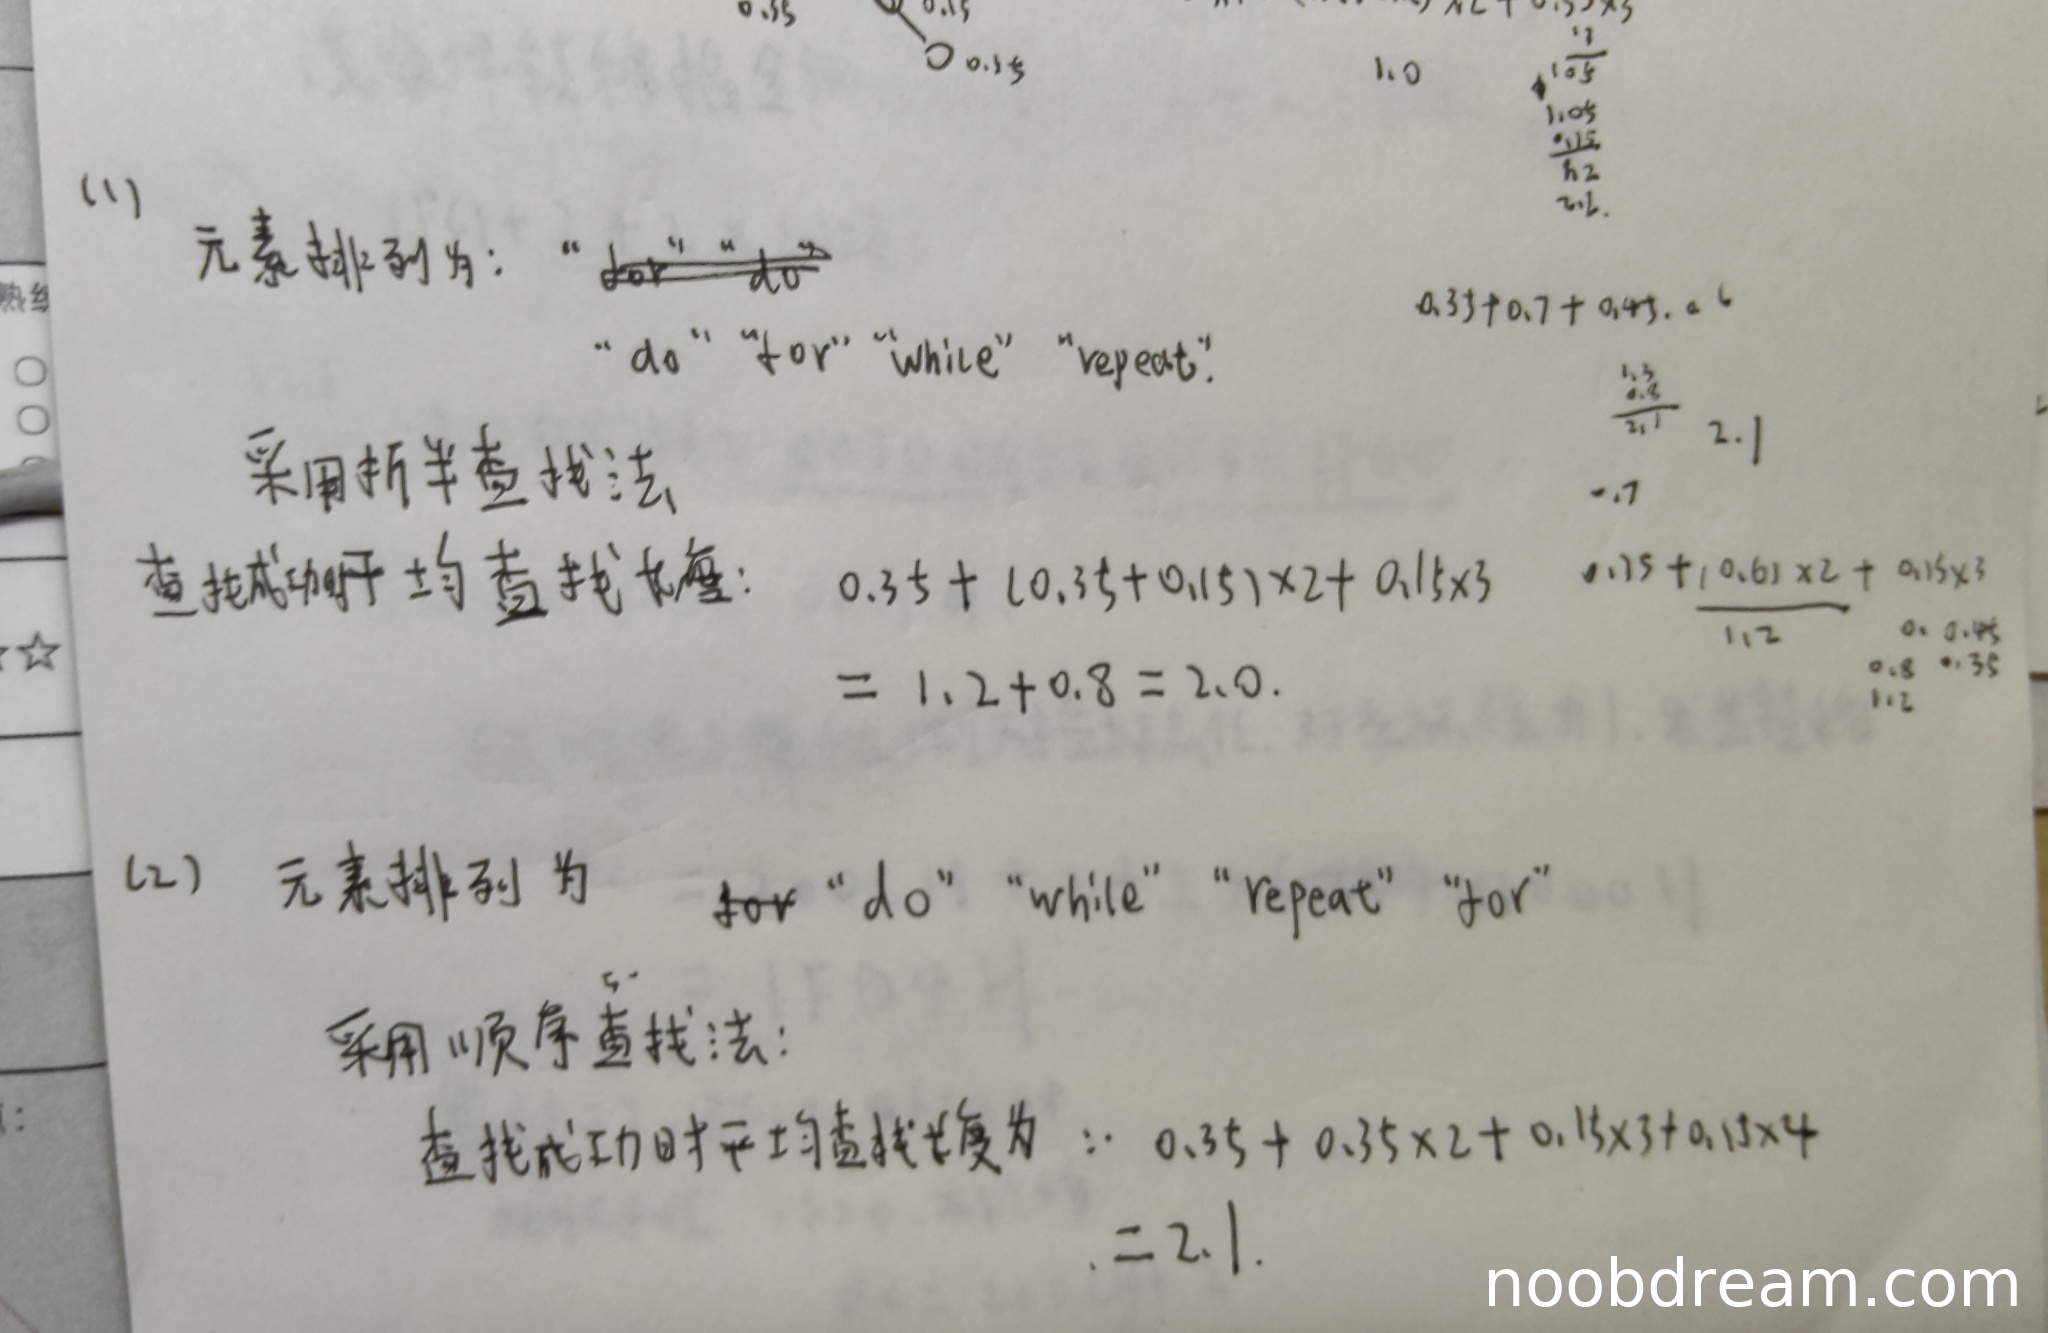 0.35 0.15
0.15
x2+0.35x3
1.0
105
1.05
0.15
(1)
元素排列为: "for" "do"
"do" "for" "while" "repeat".
0.35+0.7+0.45.
1.3
0.8
2.1 2.1
采用折半查找法
查找成功时平均查找长度: 0.35+(0.35+0.15)×2+0.15×3
=1.2+0.8=2.0.
0.35+(0.6)×2+0.15×3
1.2
0. 0.45
0.8 0.35
1.2
(2) 元素排列为 for "do" "while" "repeat" "for"
采用顺序查找法:
查找成功时平均查找长度为: 0.35+0.35×2+0.15×3+0.15×4
=2.1.
熟练
noobdream.com